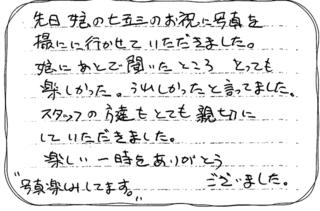 先日 娘の七五三のお祝に写真を
撮にに行かせていただきました。
娘にあとで聞いたところ とっても
楽しかった。うれしかったと言ってました。
スタッフの方達もとても親切に
していただきました。
楽しい一時をありがとう
ございました。
"写真楽しみしてます。"